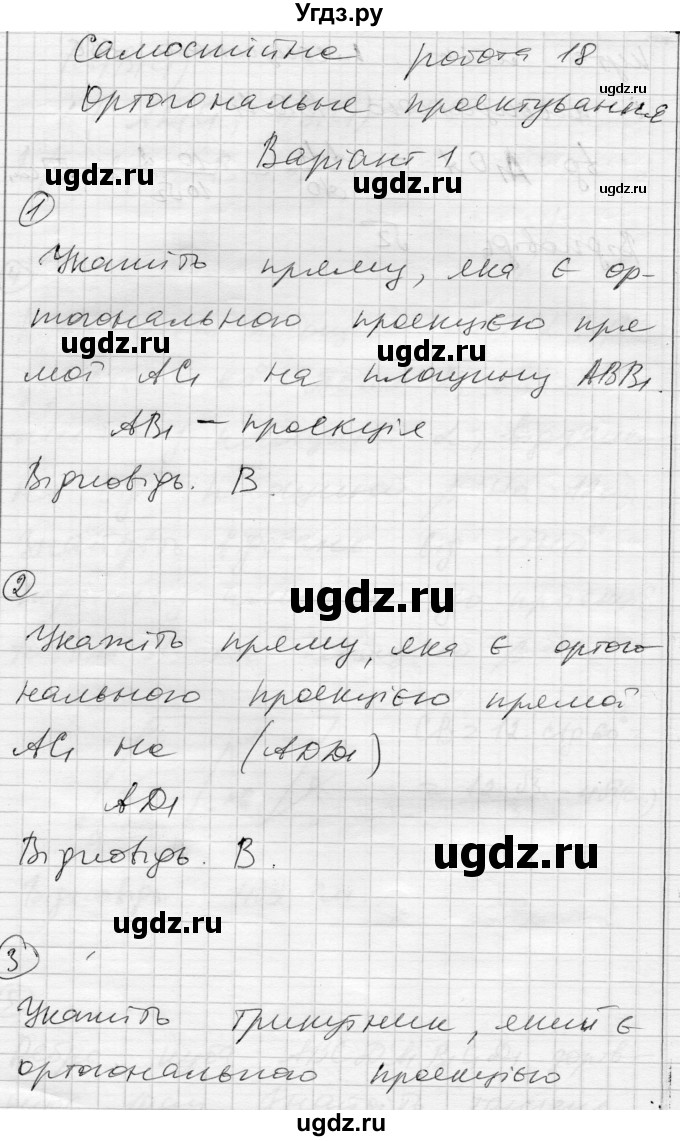 Угдз.ру
Самостійна робота 18
ugdz.ru
Ортогональне проектування
Варіант 1
ugdz.ru ugdz.ru
1
Укажіть пряму, яка є ор-
тогональною проекцією пря
ugdz.ru ugdz.ru
мої AC1 на площину ABB1.
AB1 – проекція
Відповідь. В.
2
ugdz.ru
Укажіть пряму, яка є ортого
нального проекцією прямої
ugdz.ru
AC1 на (ADD1)
AD1
Відповідь. В.
ugdz.ru
ugdz.ru
3
Укажіть трикутник, який є
ортогонального проекцією
ugdz.ru